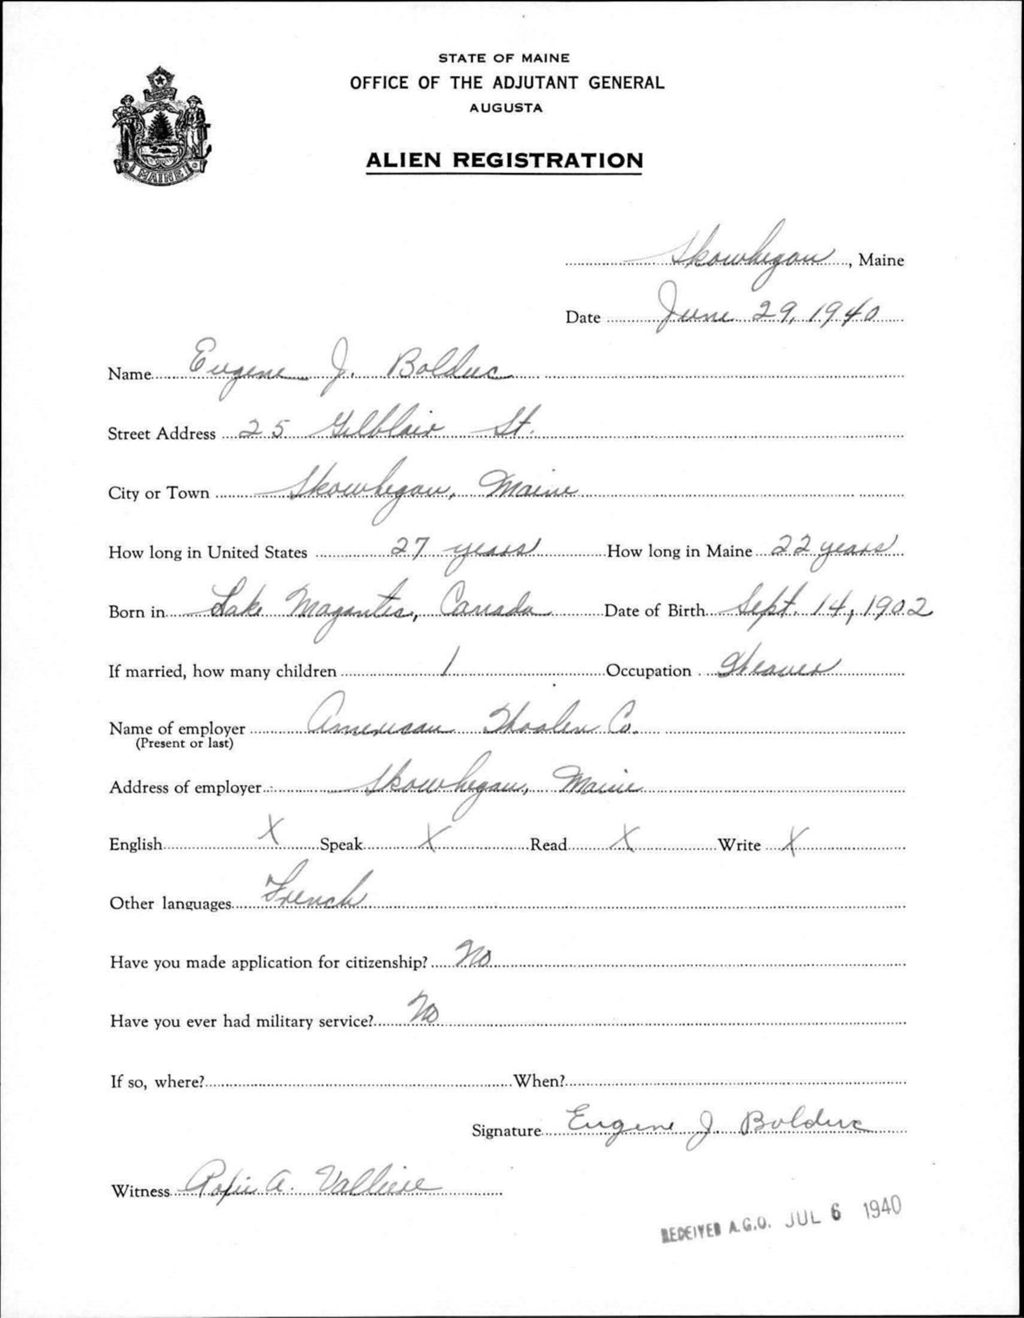 STATE OF MAINE
OFFICE OF THE ADJUTANT GENERAL
AUGUSTA
ALIEN REGISTRATION
MAINE
Skowhegan, Maine
Date June 29, 1940
Name Eugene J. Bolduc
Street Address 25 Gilblair St.
City or Town Skowhegan, Maine
How long in United States 27 years How long in Maine 22 years
Born in Lake Magantic, Canada Date of Birth Sept. 14, 1902
If married, how many children 1 Occupation Weaver
Name of employer American Woolen Co.
(Present or last)
Address of employer Skowhegan, Maine
English X Speak X Read X Write X
Other languages French
Have you made application for citizenship? No
Have you ever had military service? No
If so, where? When?
Signature Eugene J. Bolduc
Witness A. Valliere
RECEIVED A.G.O. JUL 6 1940